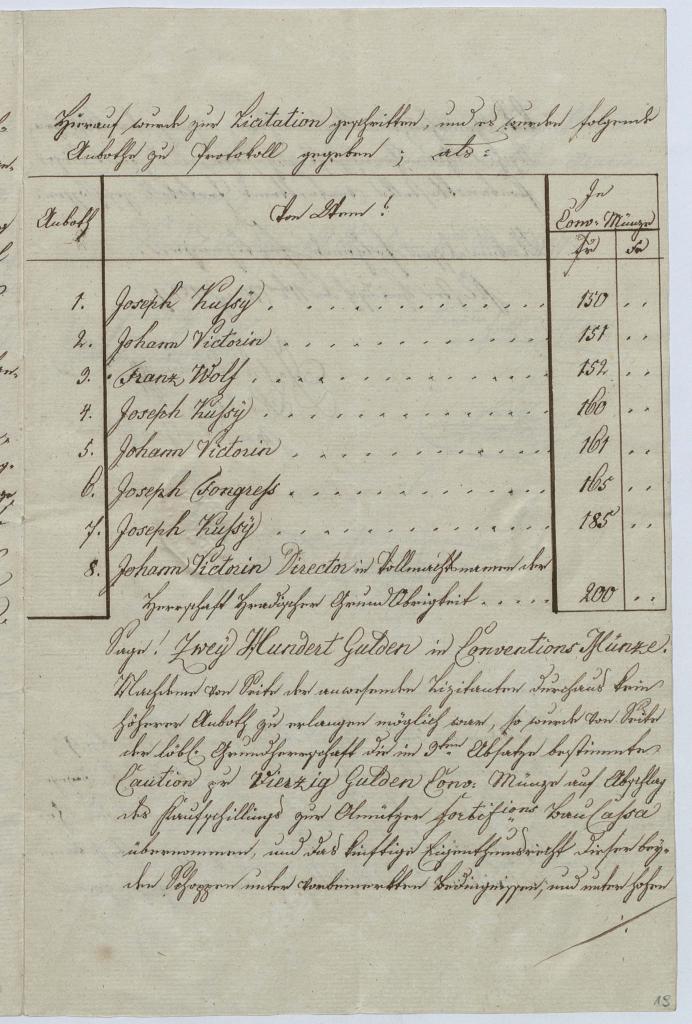 Hierauf wurde zur Licitation geschritten, und es wurden folgende
Anbothe zu Protokoll gegeben; als:
Anboth
Von Wem?
In
Conv: Münze
fr
xr
1. Joseph Kussÿ 150
2. Johann Victorin 151
3. Franz Wolf 152
4. Joseph Kussÿ 160
5. Johann Victorin 161
6. Joseph Congress 165
7. Joseph Kussÿ 185
8. Johann Victorin Director in Vollmachtsnamen der
Herrschaft Hradischer Grund Obrigkeit 200
Sage! Zweÿ Hundert Gulden in Conventions Münze.
Nachdeme von Seite der anwesenden Lizitanten durchaus kein
höherer Anboth zu erlangen möglich war, so wurde von Seite
der löbl: Grundherrschaft die in 3ten Absatze bestimmte
Caution pr Vierzig Gulden Conv: Münze auf Abschlag
des Kaufschillings zur Olmützer Fortifions Bau Cassa
übernommen, und das künftige Eigenthumsrecht dieser bey-
den Schoppen unter vorbemerkten Bedingnissen, und unter hohen
./.
19